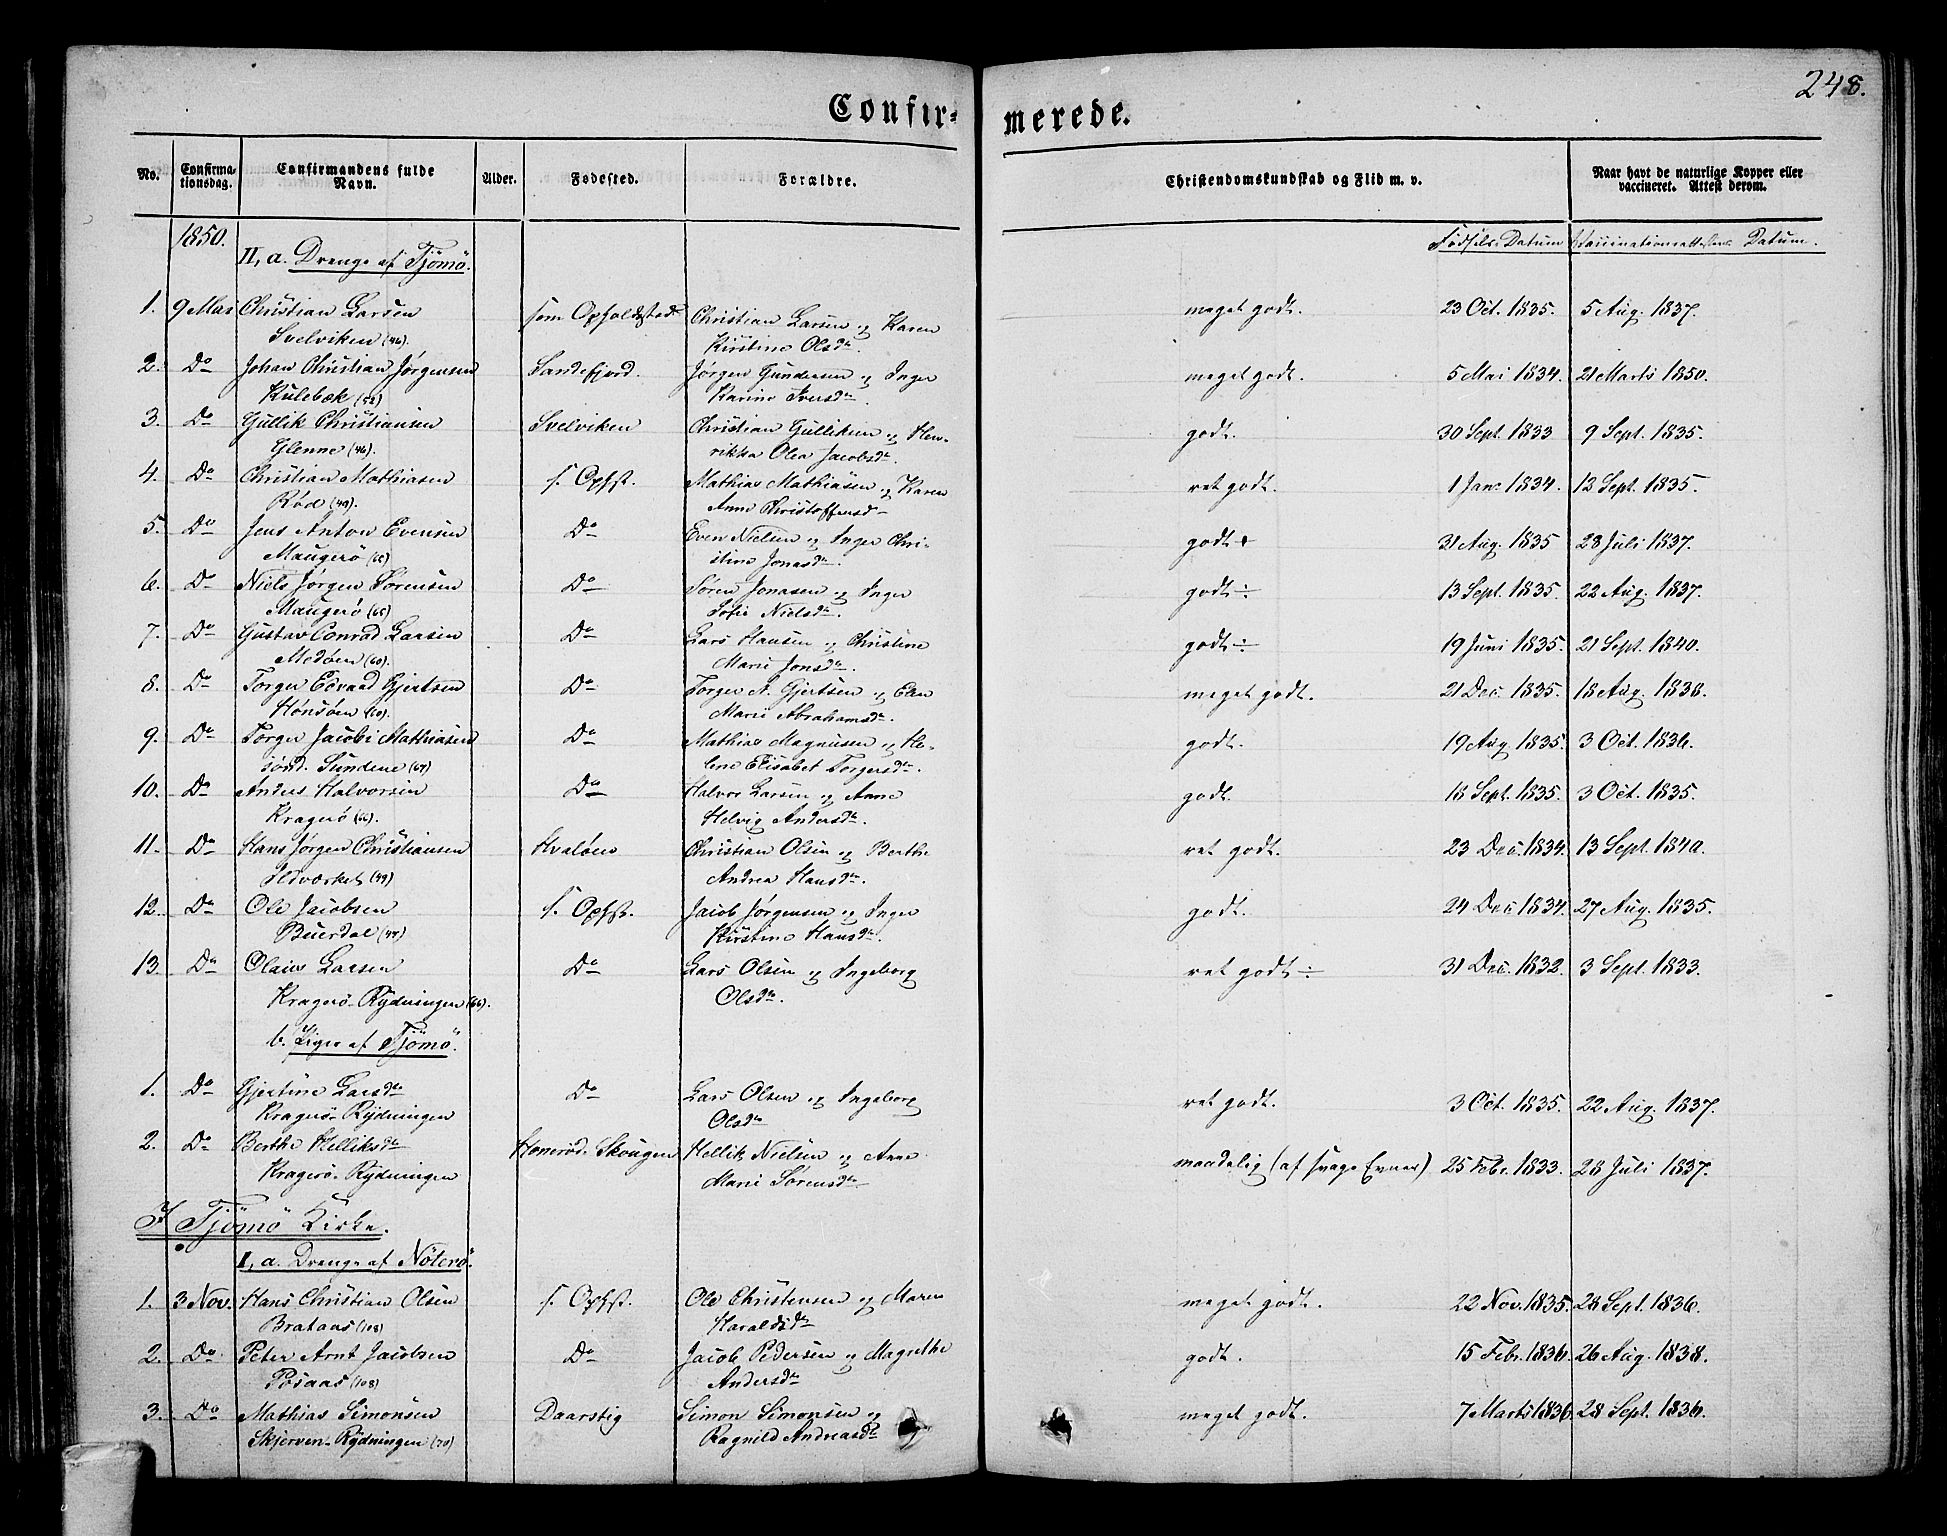 248.
Confir=
merede.
No.
Confirma-
tionsdag.
Confirmandens fulde
Navn.
Alder.
Fødested.
Forældre.
Christendomskundskab og Flid m. v.
Naar havt de naturlige Kopper eller
vaccineret. Attest derom.
1850.
II, a. Drenge af Tjömö.
Fødsels Datum Vaccinationsattestens Datum.
1. 9 Mai Christian Larsen som Opholdssted Christian Larsen og Karen meget godt. 23 Oct. 1835. 5 Aug. 1837.
Svelviken (46). Kirstine Olsdtr.
2. Do Johan Christian Jørgensen Sandefjord. Jørgen Gundersen og Inger meget godt. 5 Mai 1834. 21 Marts 1850.
Kulebæk (52) Karine Iversdtr.
3. Do Gullik Christiansen Svelviken Christian Gulliksen og Hen- godt. 30 Sept. 1833 9 Sept. 1835.
Glenne (46). rikka Olea Jacobsdtr.
4. Do Christian Mathiasen s. Ophst. Mathias Mathiasen og Karen ret godt. 1 Jan. 1834. 12 Sept. 1835.
Rød (49). Anne Christoffersdtr
5. Do Jens Anton Evensen Do Even Nielsen og Inger Chri- godt 31 Aug. 1835 28 Juli 1837.
Maugerö (65) stine Jonasdtr.
6. Do Niels Jørgen Sørensen Do Søren Jonasen og Inger godt ÷ 13 Sept. 1835. 22 Aug. 1837.
Maugerö (65) Sofie Nielsdtr.
7. Do Gustav Conrad Larsen Do Lars Hansen og Christine godt ÷ 19 Juni 1835. 21 Sept. 1840.
Medöen (60). Marie Jonsdtr.
8. Do Torger Edvard Gjertsen Do Torger N. Gjertsen og Elen meget godt. 21 Dec. 1835. 18 Aug. 1838.
Hönsöen (60). Marie Abrahamsdtr.
9. Do Torger Jacobi Mathiasen Do Mathias Magnusen og He- godt. 19 Aug. 1835. 3 Oct. 1836.
sönd. Sundene (64) lene Elisabet Torgersdtr.
10. Do Anders Halvorsen Do Halvor Larsen og Anne godt. 18 Sept. 1835. 3 Oct. 1835.
Kragerö (66). Helvig Andersdtr.
11. Do Hans Jørgen Christiansen Hvalöen Christian Olsen og Berthe ret godt. 23 Dec. 1834. 13 Sept. 1840.
Ildværket (49) Andrea Hansdtr.
12. Do Ole Jacobsen s. Ophst. Jacob Jørgensen og Inger godt. 24 Dec 1834. 27 Aug. 1835.
Beuerdal (44) Kirstine Hansdtr.
13. Do Olaus Larsen Do Lars Olsen og Ingeborg ret godt ÷ 31 Dec. 1832. 3 Sept. 1833.
Kragerö-Rydningen (66). Olsdtr.
b. Piger af Tjömö.
1. Do Gjertine Larsdtr Do Lars Olsen og Ingeborg ret godt. 3 Oct. 1835. 22 Aug. 1837.
Kragerö-Rydningen Olsdtr
2. Do Berthe Helliksdtr Honeröd-Skougen Hellik Nielsen og Anne maadelig (af svage Evner) 25 Febr. 1833. 28 Juli 1837.
Kragerö-Rydningen Marie Sørensdtr
I Tjömö Kirke.
I, a. Drenge af Nöterö.
1. 3 Nov. Hans Christian Olsen s. Ophst. Ole Christensen og Maren meget godt. 22 Nov. 1835. 28 Sept. 1836.
Brataas (108) Haraldsdtr
2. Do Peter Arnt Jacobsen Do Jacob Pedersen og Magrethe godt. 15 Febr. 1836. 26 Aug. 1838.
Posaas (108) Andersdtr
3. Do Mathias Simonsen Daarstig Simon Simonsen og meget godt. 7 Marts 1836. 28 Sept. 1836.
Skjerven-Rydningen (70) Ragnild Andreasdtr